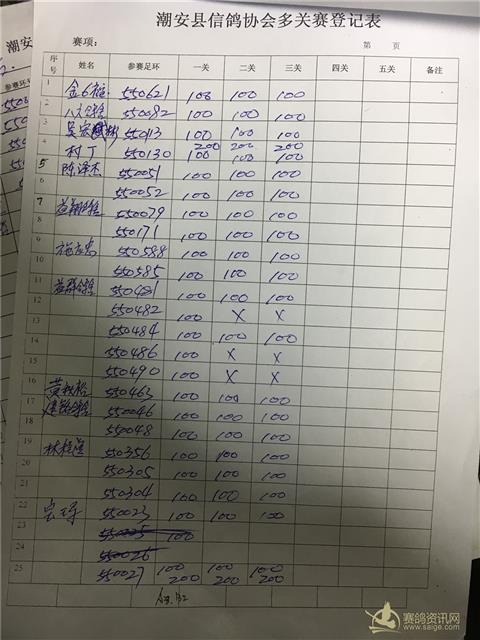 潮安县信鸽协会多关赛登记表
赛项： 第 页
序号 姓名 参赛足环 一关 二关 三关 四关 五关 备注
1 550621 100 100 100
2 550082 100 100 100
3 550113 100 100 100
200 200 200
4 村丁 550130 100 100 100
5 陈泽杰 550051 100 100 100
6 550052 100 100 100
7 550079 100 100 100
8 550171 100 100 100
9 550588 100 100 100
10 550585 100 100 100
11 550481 100 100 100
12 550482 100 X X
13 550484 100 100 100
14 550486 100 X X
15 550490 100 X X
16 550463 100 100 100
17 550046 100 100 100
18 550048 100 100 100
19 550356 100 100 100
20 550305 100 100 100
21 550304 100 100 100
22 550023 100 100 100
23 550025 100
24 550026
25 550027 100 100 100
200 200 200
潮安县
参赛环号
赛鸽资讯网
www.saige.com